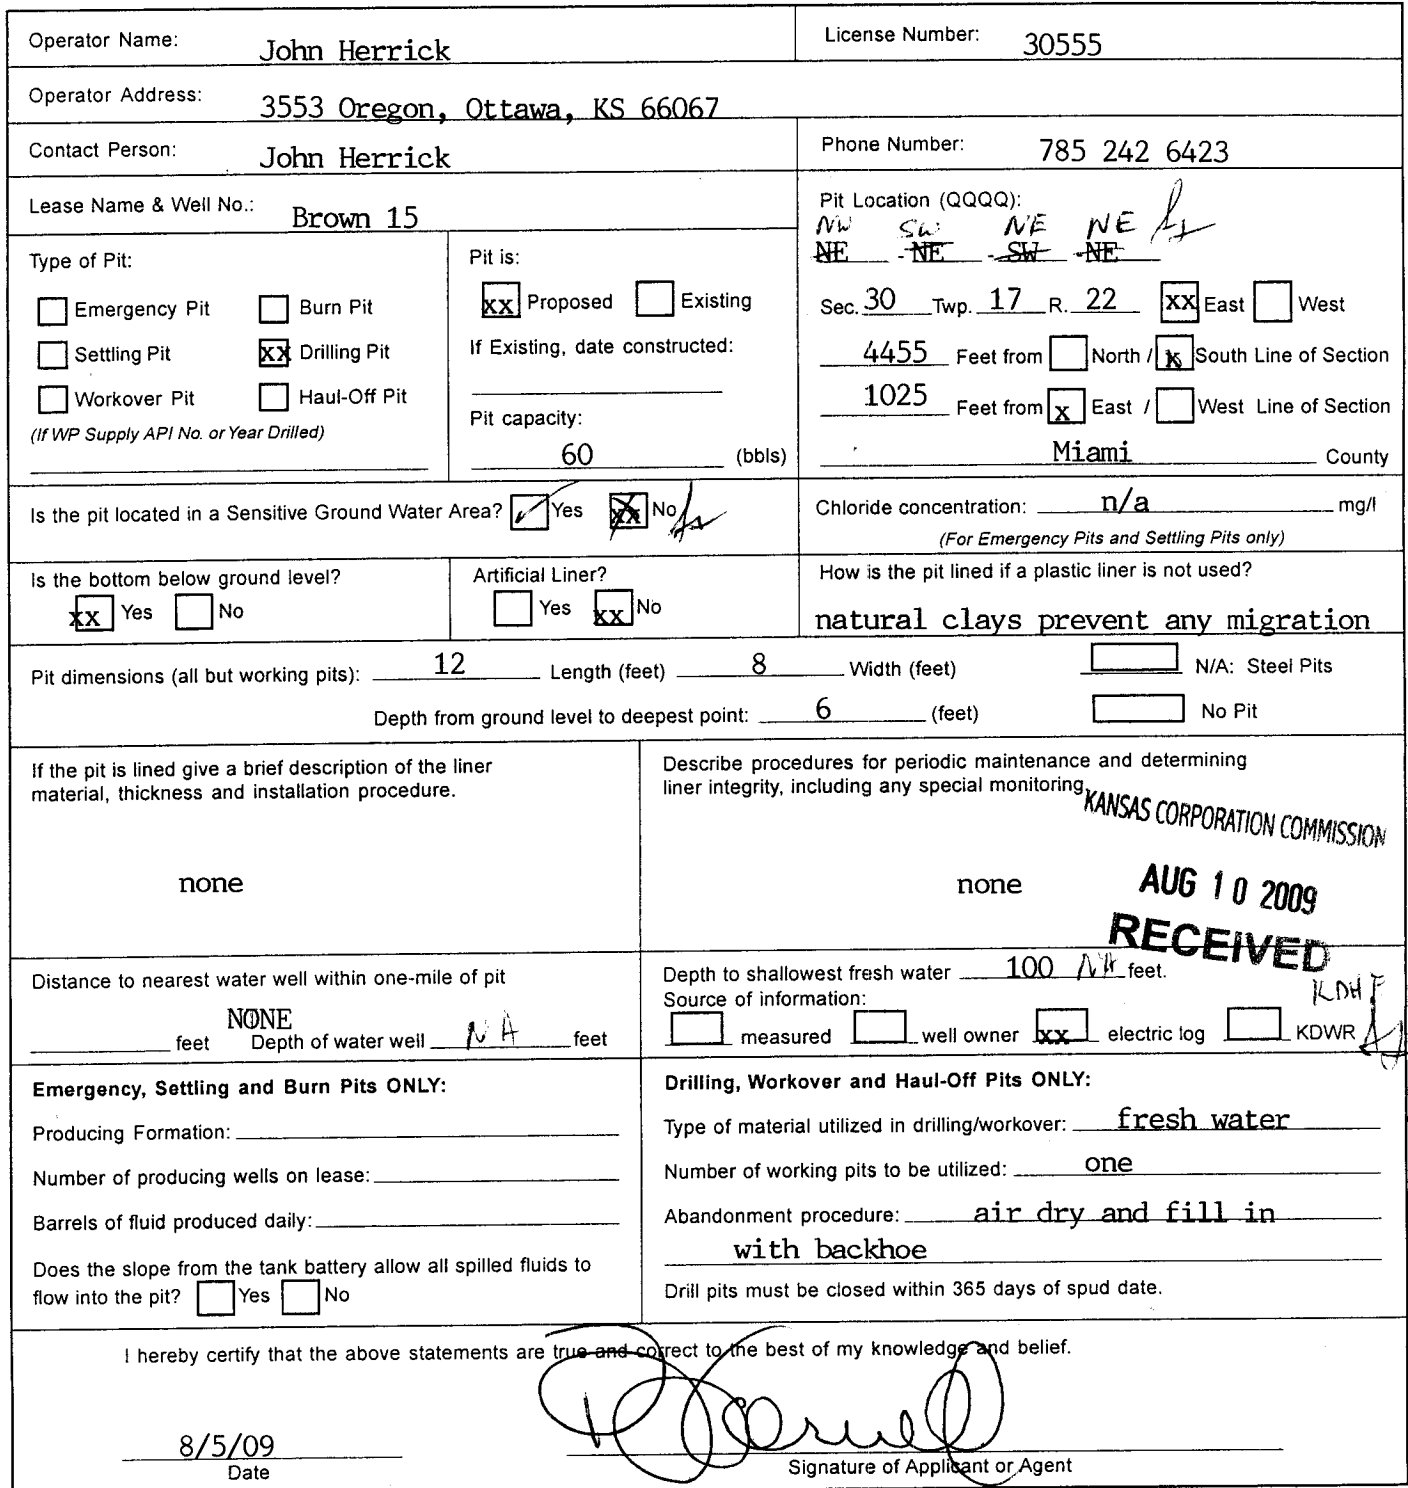 Operator Name: John Herrick License Number: 30555
Operator Address: 3553 Oregon, Ottawa, KS 66067
Contact Person: John Herrick Phone Number: 785 242 6423
Lease Name & Well No.: Brown 15
Pit Location (QQQQ):
NW SW NE NE
NE - NE - SW - NE
Type of Pit:
Emergency Pit Burn Pit
Settling Pit xx Drilling Pit
Workover Pit Haul-Off Pit
(If WP Supply API No. or Year Drilled)
Pit is:
xx Proposed Existing
If Existing, date constructed:
Pit capacity:
60 (bbls)
Sec. 30 Twp. 17 R. 22 xx East West
4455 Feet from North / x South Line of Section
1025 Feet from x East / West Line of Section
Miami County
Is the pit located in a Sensitive Ground Water Area? ✓ Yes xx No
Chloride concentration: n/a mg/l
(For Emergency Pits and Settling Pits only)
Is the bottom below ground level?
xx Yes No
Artificial Liner?
Yes xx No
How is the pit lined if a plastic liner is not used?
natural clays prevent any migration
Pit dimensions (all but working pits): 12 Length (feet) 8 Width (feet) N/A: Steel Pits
Depth from ground level to deepest point: 6 (feet) No Pit
If the pit is lined give a brief description of the liner
material, thickness and installation procedure.
none
Describe procedures for periodic maintenance and determining
liner integrity, including any special monitoring.
none
KANSAS CORPORATION COMMISSION
AUG 10 2009
RECEIVED
Distance to nearest water well within one-mile of pit
NONE
feet Depth of water well NA feet
Depth to shallowest fresh water 100 NA feet.
Source of information:
measured well owner xx electric log KDWR
Emergency, Settling and Burn Pits ONLY:
Producing Formation:
Number of producing wells on lease:
Barrels of fluid produced daily:
Does the slope from the tank battery allow all spilled fluids to
flow into the pit? Yes No
Drilling, Workover and Haul-Off Pits ONLY:
Type of material utilized in drilling/workover: fresh water
Number of working pits to be utilized: one
Abandonment procedure: air dry and fill in
with backhoe
Drill pits must be closed within 365 days of spud date.
I hereby certify that the above statements are true and correct to the best of my knowledge and belief.
8/5/09
Date
Signature of Applicant or Agent